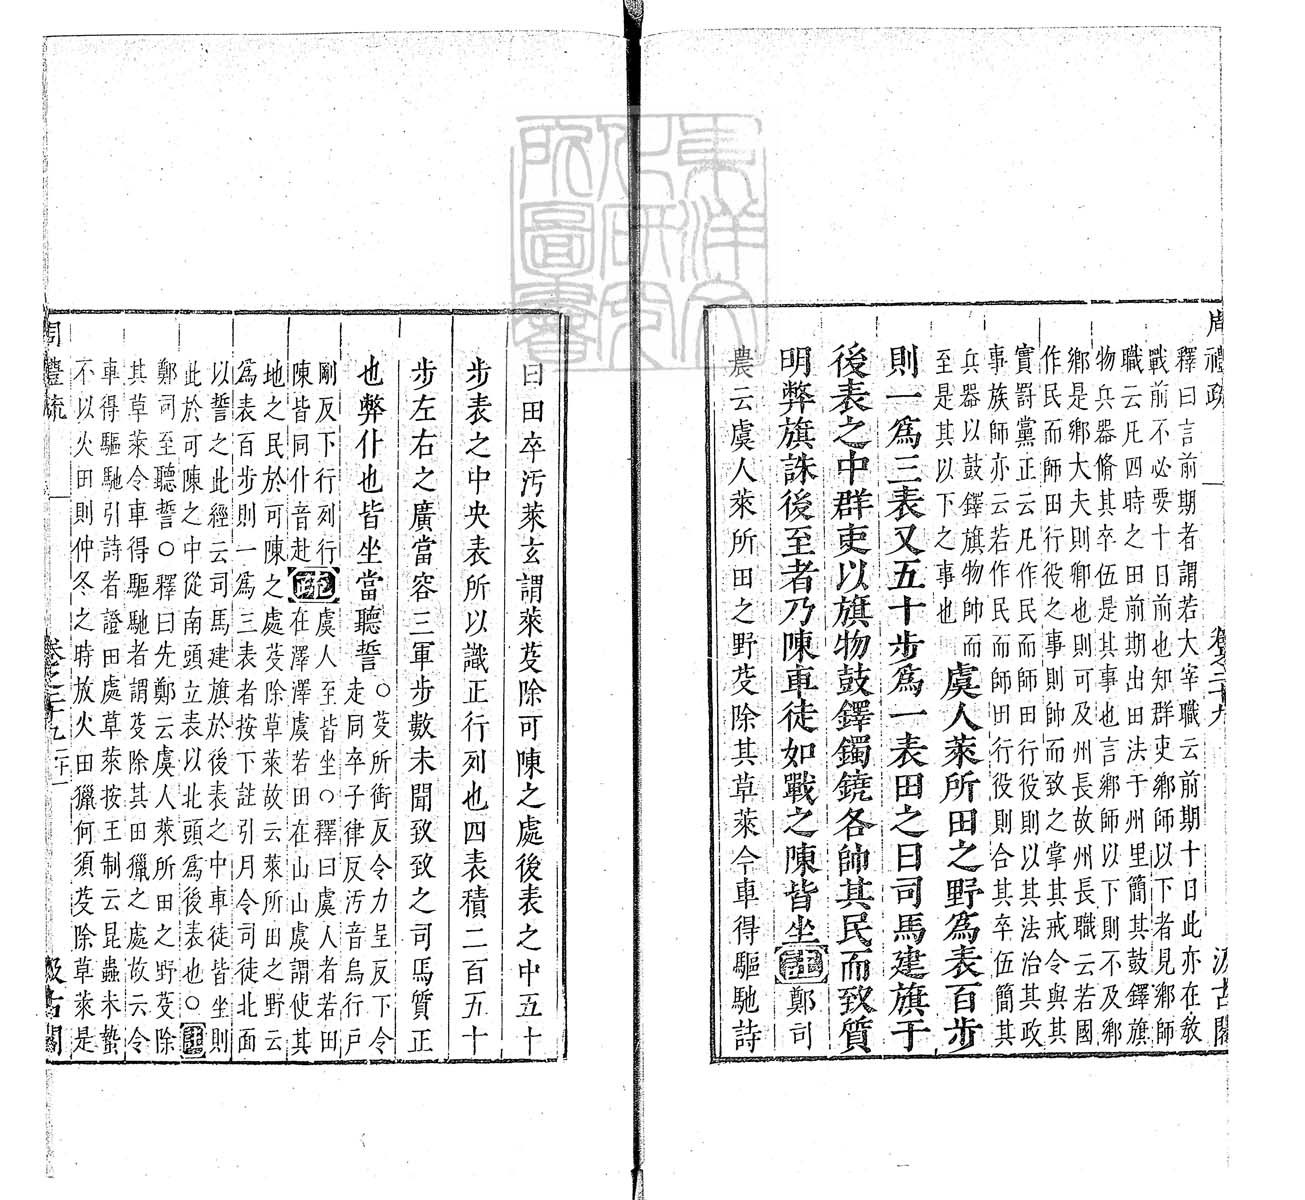 周禮疏 卷之二十九 汲古閣
釋曰言前期者謂若大宰職云前期十日此亦在教
戰前不必要十日前也知群吏鄉師以下者見鄉師
職云凡四時之田前期出田法于州里簡其鼓鐸旗
物兵器脩其卒伍是其事也言鄉師以下則不及鄉
鄉是鄉大夫則卿也則可及州長故州長職云若國
作民而師田行役之事則帥而致之掌其戒令與其
賞罰黨正云凡作民而師田行役則以其法治其政
事族師亦云若作民而師田行役則合其卒伍簡其
兵器以鼓鐸旗物帥而
至是其以下之事也
虞人萊所田之野爲表百步
則一爲三表又五十步爲一表田之日司馬建旗于
後表之中群吏以旗物鼓鐸鐲鐃各帥其民而致質
明弊旗誅後至者乃陳車徒如戰之陳皆坐註鄭司
農云虞人萊所田之野芟除其草萊令車得驅馳詩
曰田卒汚萊玄謂萊芟除可陳之處後表之中五十
步表之中央表所以識正行列也四表積二百五十
步左右之廣當容三軍步數未聞致致之司馬質正
也弊仆也皆坐當聽誓
○芟所銜反令力呈反下令
走同卒子律反汚音烏行戸
剛反下行列行
陳皆同仆音赴
疏
虞人至皆坐○釋曰虞人者若田
在澤澤虞若田在山山虞謂使其
地之民於可陳之處芟除草萊故云萊所田之野云
爲表百步則一爲三表者按下註引月令司徒北面
以誓之此經云司馬建旗於後表之中車徒皆坐則
此於可陳之中從南頭立表以北頭爲後表也○註
鄭司至聽誓○釋曰先鄭云虞人萊所田之野芟除
其草萊令車得驅馳者謂芟除其田獵之處故云令
車得驅馳引詩者證田處草萊按王制云昆蟲未蟄
不以火田則仲冬之時放火田獵何須芟除草萊是
周禮疏 卷之二十九 二十一 汲古閣
東洋文
化研究
所圖書